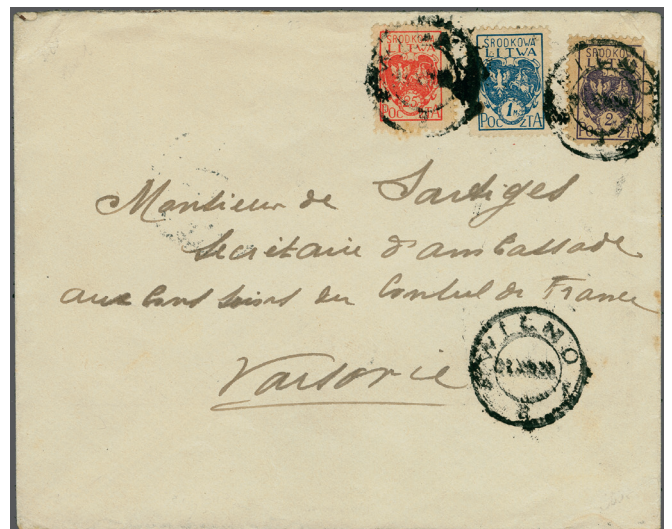 ŚRODKOWA LITWA 25 POCZTA
ŚRODKOWA LITWA 1 M. POCZTA
ŚRODKOWA LITWA 2 POCZTA
Monsieur de
Secrétaire d'ambassade
aux bons soins du Consul de France
Varsovie
WILNO